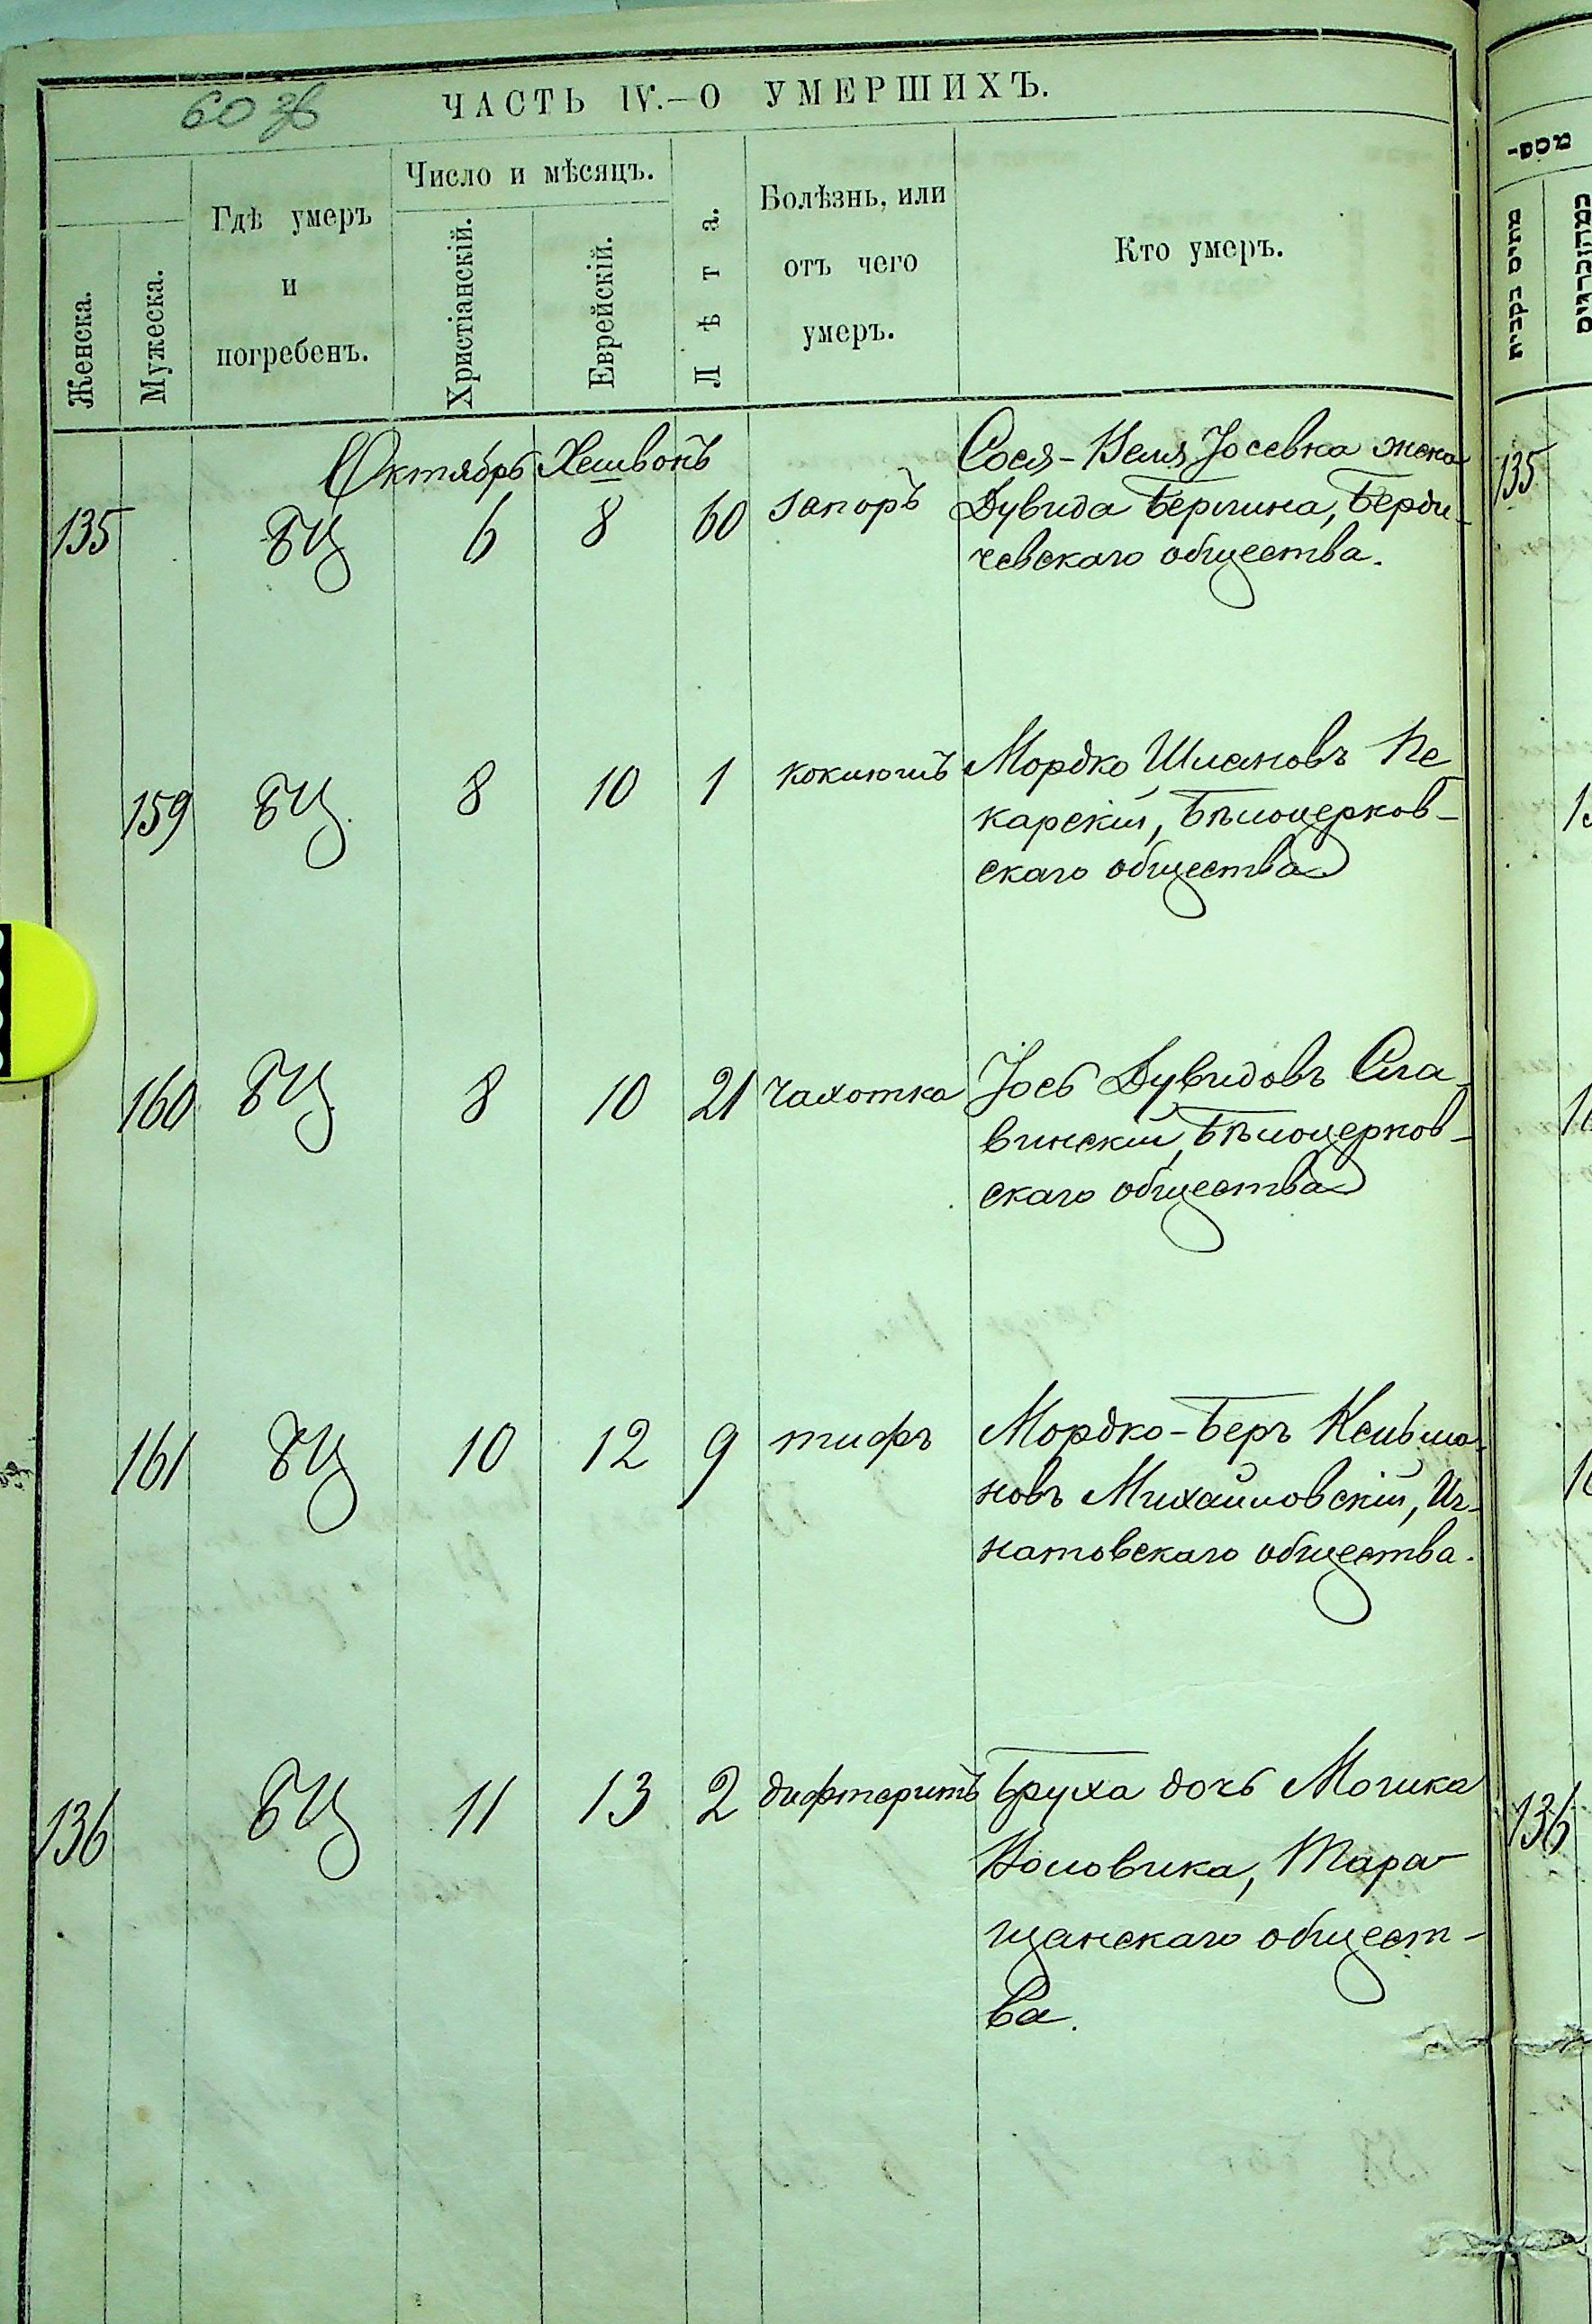 60 об
ЧАСТЬ IV.–О УМЕРШИХЪ.
Женска.
Мужеска.
Гдѣ умеръ
и
погребенъ.
Число и мѣсяцъ.
Христіанскій.
Еврейскій.
Лѣта.
Болѣзнь, или
отъ чего
умеръ.
Кто умеръ.
Октябрь Хешвонъ
135 БЦ 6 8 60 запоръ
Сося-Веля Іосевна жена
Дувида Берлина, Берди-
чевскаго общества.
159 БЦ. 8 10 1 коклюшъ
Мордко Шлановъ Пе
карскій, Бѣлоцерков-
скаго общества
160 БЦ. 8 10 21 чахотка
Іось Дувидовъ Сла-
винскій, Бѣлоцерков-
скаго общества
161 БЦ 10 12 9 тифъ
Мордко-Беръ Кельма-
новъ Михайловскій, Иг-
натовскаго общества.
136 БЦ 11 13 2 дифтеритъ
Бруха дочь Мошка
Воловика, Тара-
щанскаго общест-
ва.
מספ-
135
136